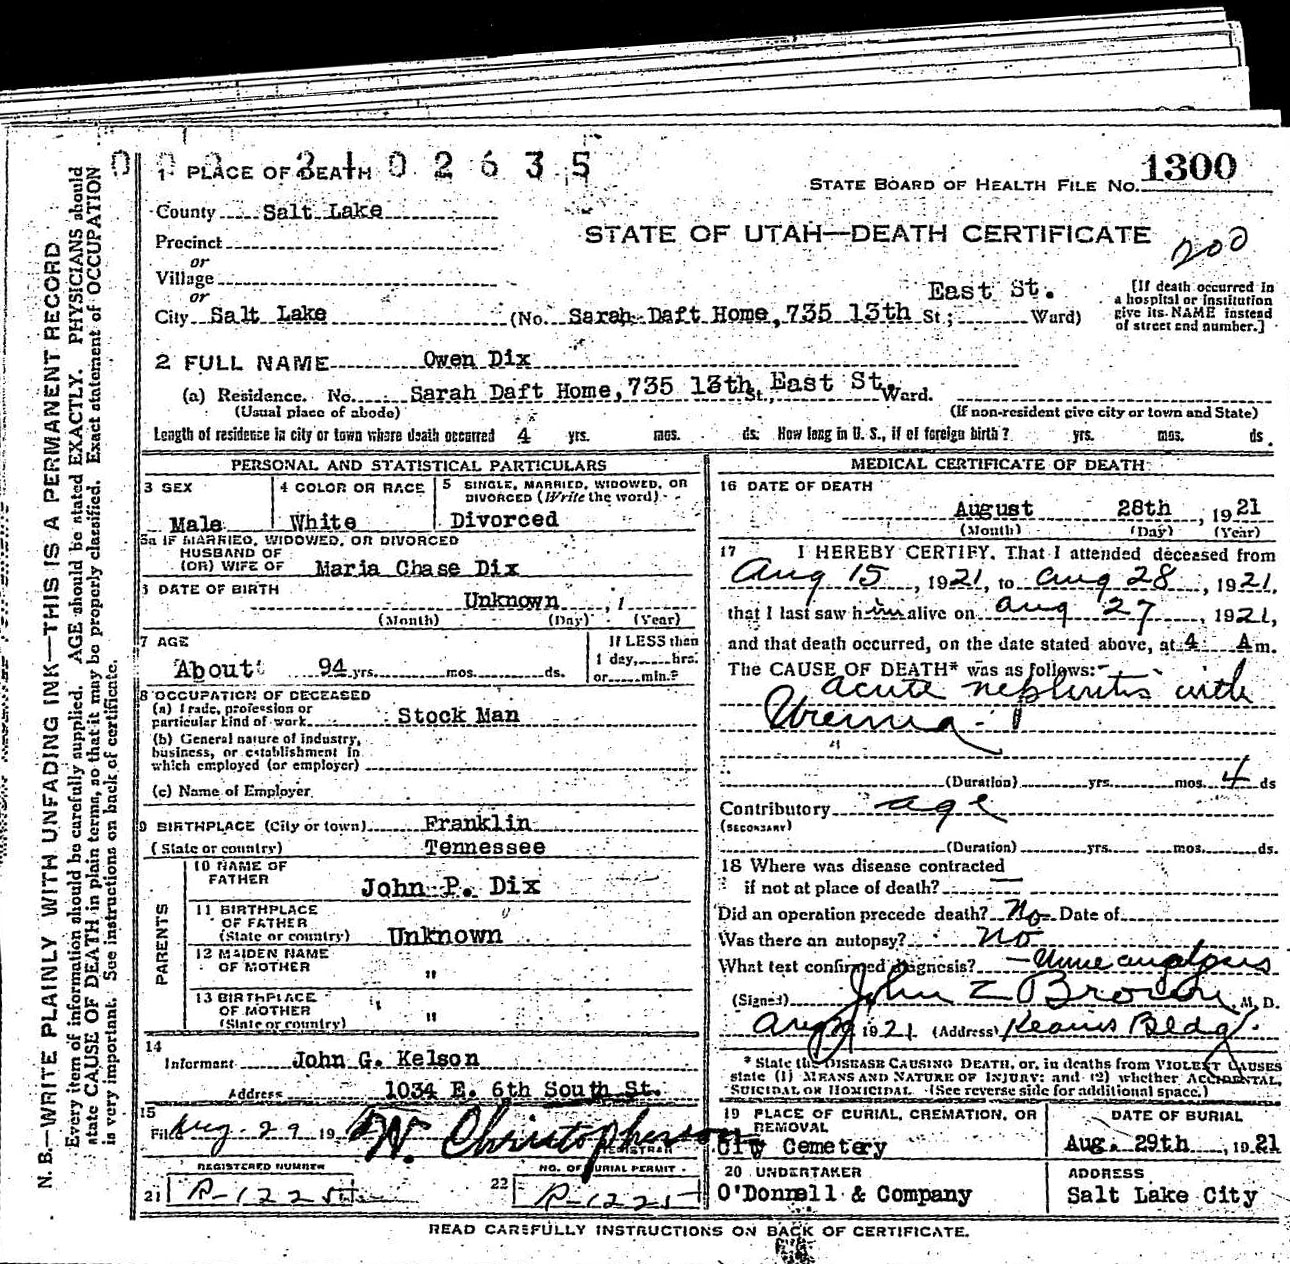 0 0 0 2 1 0 2 6 3 5
1 PLACE OF DEATH
STATE BOARD OF HEALTH FILE NO. 1300
County Salt Lake
STATE OF UTAH—DEATH CERTIFICATE
200
Precinct
or
Village
or
City Salt Lake (No. Sarah Daft Home, 735 13th East St. St.; Ward)
[If death occurred in
a hospital or institution
give its NAME instead
of street and number.]
2 FULL NAME Owen Dix
(a) Residence. No. Sarah Daft Home, 735 13th East St. St., Ward.
(Usual place of abode) (If non-resident give city or town and State)
Length of residence in city or town where death occurred 4 yrs. mos. ds. How long in U. S., if of foreign birth? yrs. mos. ds.
PERSONAL AND STATISTICAL PARTICULARS
3 SEX
Male
4 COLOR OR RACE
White
5 SINGLE, MARRIED, WIDOWED, OR
DIVORCED (Write the word)
Divorced
5a IF MARRIED, WIDOWED, OR DIVORCED
HUSBAND OF
(OR) WIFE OF Maria Chase Dix
6 DATE OF BIRTH
Unknown , 1
(Month) (Day) (Year)
7 AGE
About 94 yrs. mos. ds.
If LESS than
1 day, hrs.
or min.?
8 OCCUPATION OF DECEASED
(a) Trade, profession or
particular kind of work Stock Man
(b) General nature of industry,
business, or establishment in
which employed (or employer)
(c) Name of Employer
9 BIRTHPLACE (City or town) Franklin
(State or country) Tennessee
PARENTS
10 NAME OF
FATHER John P. Dix
11 BIRTHPLACE
OF FATHER
(State or country) Unknown
12 MAIDEN NAME
OF MOTHER "
13 BIRTHPLACE
OF MOTHER
(State or country) "
14
Informant John G. Kelson
Address 1034 E. 6th South St.
15
Filed Aug. 29 19 W. Christopherson
REGISTRAR
REGISTERED NUMBER
21 R-1225
NO. OF BURIAL PERMIT
22 R-1225
MEDICAL CERTIFICATE OF DEATH
16 DATE OF DEATH
August 28th , 1921
(Month) (Day) (Year)
17 I HEREBY CERTIFY, That I attended deceased from
Aug 15, 1921, to Aug 28, 1921,
that I last saw him alive on Aug 27, 1921,
and that death occurred, on the date stated above, at 4 A m.
The CAUSE OF DEATH* was as follows:
acute nephritis with
Uremia
(Duration) yrs. mos. 4 ds
Contributory age
(SECONDARY)
(Duration) yrs. mos. ds.
18 Where was disease contracted
if not at place of death? —
Did an operation precede death? No Date of
Was there an autopsy? No
What test confirmed diagnosis? Urine analysis
(Signed) John Z Brown M. D.
Aug 1921 (Address) Kearns Bldg.
* State the DISEASE CAUSING DEATH, or, in deaths from VIOLENT CAUSES
state (1) MEANS AND NATURE OF INJURY; and (2) whether ACCIDENTAL,
SUICIDAL OR HOMICIDAL. (See reverse side for additional space.)
19 PLACE OF BURIAL, CREMATION, OR
REMOVAL
City Cemetery
DATE OF BURIAL
Aug. 29th , 1921
20 UNDERTAKER
O'Donnell & Company
ADDRESS
Salt Lake City
READ CAREFULLY INSTRUCTIONS ON BACK OF CERTIFICATE.
N. B.—WRITE PLAINLY WITH UNFADING INK—THIS IS A PERMANENT RECORD
Every item of information should be carefully supplied. AGE should be stated EXACTLY. PHYSICIANS should
state CAUSE OF DEATH in plain terms, so that it may be properly classified. Exact statement of OCCUPATION
is very important. See instructions on back of certificate.